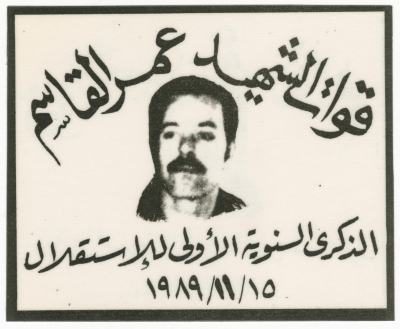 قوات الشهيد عمر القاسم
الذكرى السنوية الأولى للاستقلال
١٩٨٩/١١/١٥